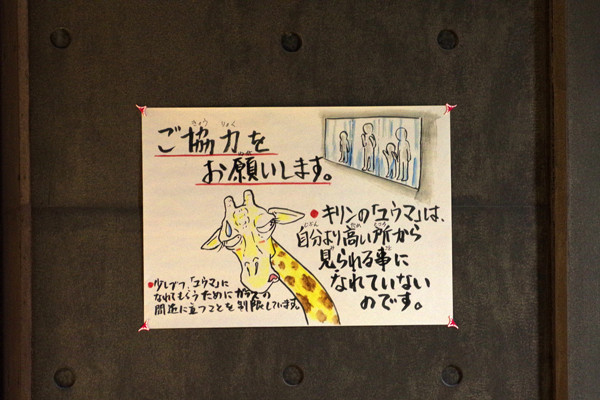 ご協力を
お願いします。
キリンの「ユウマ」は、
自分より高い所から
見られる事に
なれていない
のです。
少しずつ、「ユウマ」に
なれてもらうためにガラスの
間近に立つことを制限しています。